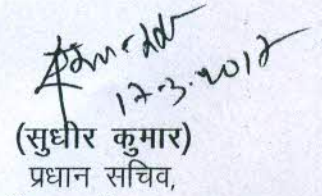 17.3.2017
(सुधीर कुमार)
प्रधान सचिव,